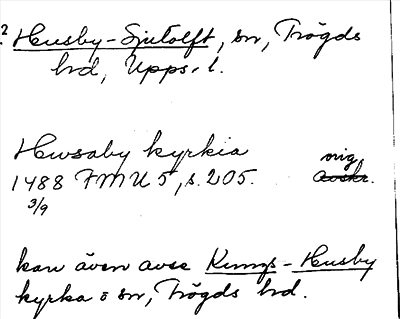 ? Husby-Sjutolft, sn, Trögds
hd, Upps. l.
Hwsaby kyrkia
orig.
1488 FMU 5, s. 205. avskr.
3/9
kan även avse Kungs-Husby
kyrka o sn, Trögds hd.